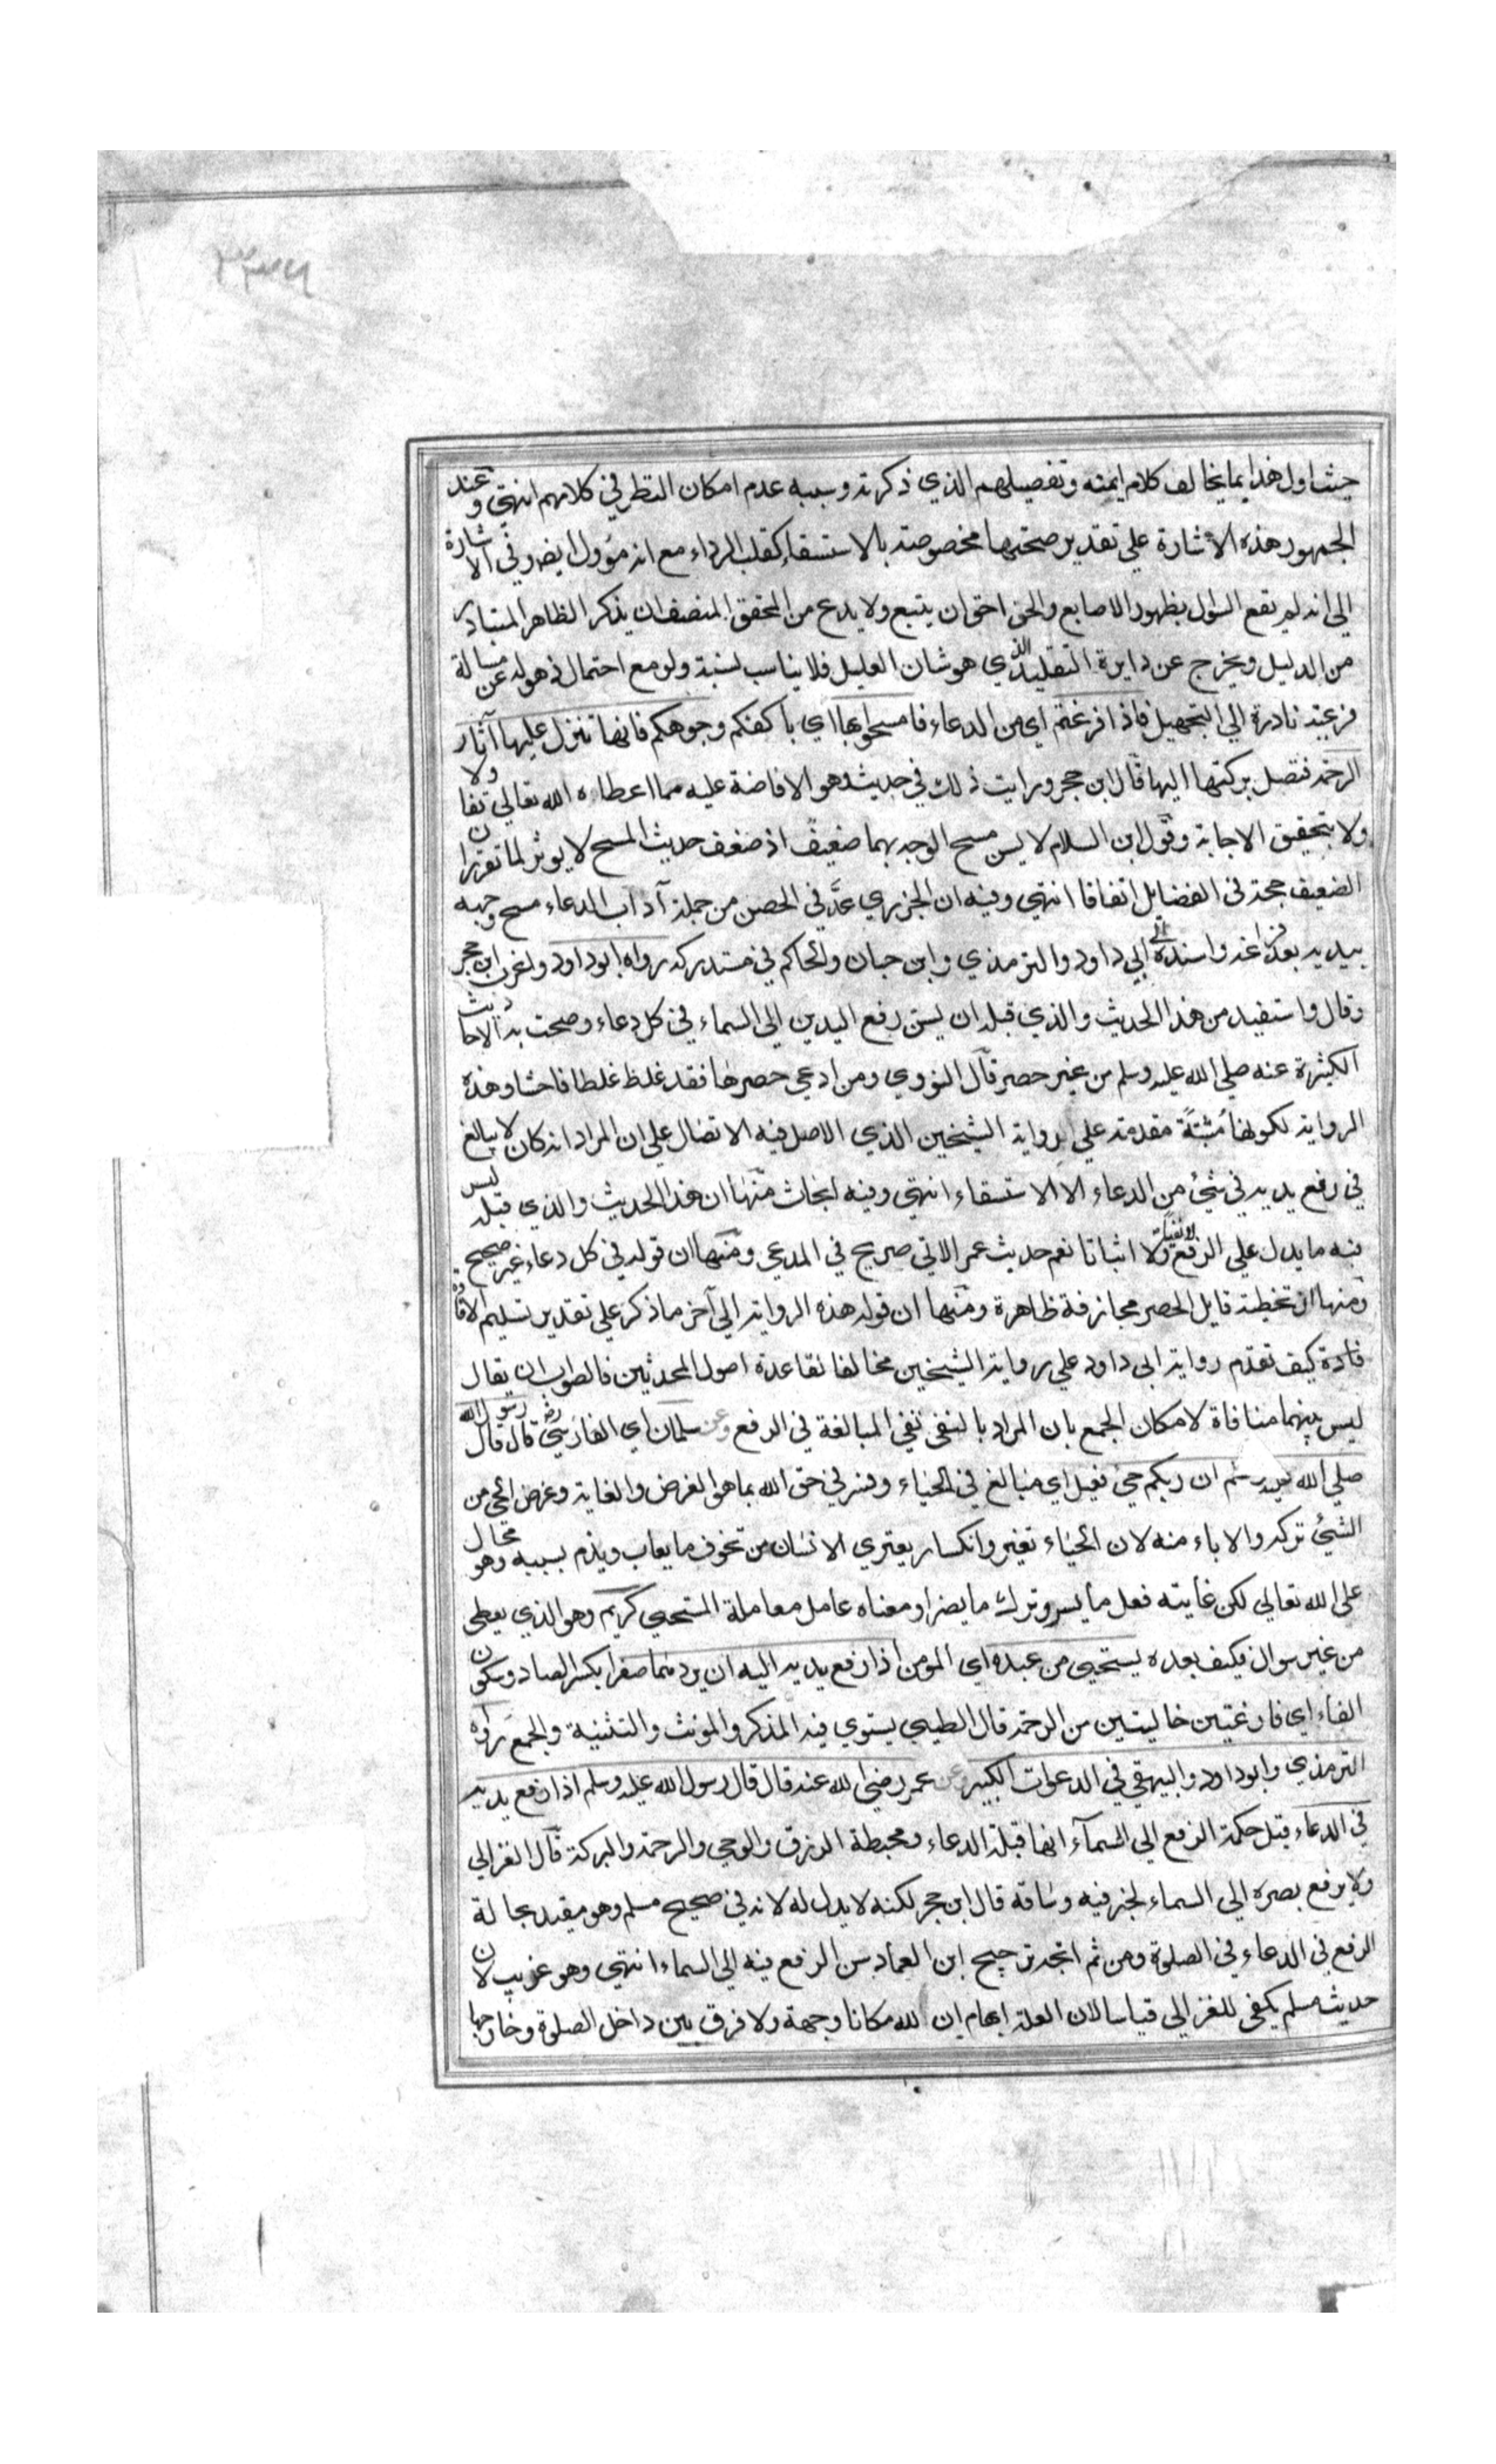 ٣٣٧٩
حيث اول هذا بما يخالف كلام ايمته وتفصيلهم الذي ذكرته وسببه عدم امكان النظر في كلامهم انتهي وعند
الجمهور هذه الاشارة علي تقدير صحتها مخصوصة بالاستسقاء كقلب الرداء مع انه مؤول ايضا وفي الاشارة
الي انه لم يقع السؤل بظهور الاصابع والحق احق ان يتبع ولا يدع من المحقق المنصف ان يذكر الظاهر المتبادر
من الدليل ويخرج عن دايرة التقليد الذي هو شان العليل فلا يناسب لنسبة ولو مع احتمال في هوله عن مسالة
فرعية نادرة الي التجهيل فاذا فرغتم اي من الدعاء فامسحوا بها اي باكفكم وجوهكم فانها تنزل عليها آثار
الرحمة فتصل بركتها اليها قال ابن حجر ورايت ذلك في حديث وهو الافاضة عليه مما اعطاه الله تعالي تفاولا
ولا بتحقيق الاجابة وقول ابن السلام لا يسن مسح الوجه بهما ضعيف اذ ضعف حديث المسح لا يوثر لما تقرر ان
الضعيف حجة في الفضايل اتفاقا انتهي وفيه ان الجزري عدَّ في الحصن من جملة آداب الدعاء مسح وجهه
بيديه بعد فراغه واسنده الي ابي داود والترمذي وابن حبان والحاكم في مستدركه رواه ابو داود واغرب ابن حجر
وقال واستفيد من هذا الحديث والذي قبله ان يسن رفع اليدين الي السماء في كل دعاء وصحت به الاحاديث
الكثيرة عنه صلي الله عليه وسلم من غير حصر قال النووي ومن ادعي حصرها فقد غلط غلطا فاحشا وهذه
الرواية لكونها مُثبتةً مقدمة علي رواية الشيخين الذي الاصل فيه الاتصال علي ان المراد انه كان لا يبالغ
في رفع يديه في شئ من الدعاء الا الاستسقاء انتهي وفيه ابحاث منها ان هذا الحديث والذي قبله ليس
فيه ما يدل علي الرفع لا نفيا ولا اثباتا نعم حديث عمر الاتي صريح في المدعي ومنها ان قوله في كل دعاء غير صحيح
ومنها ان تخطية قايل الحصر مجازفة ظاهرة ومنها ان قوله هذه الرواية الي آخر ما ذكر علي تقدير تسليم الافادة
فادة كيف تقدم رواية ابي داود علي رواية الشيخين مخالفا لقاعدة اصول المحدثين فالصواب ان يقال
ليس بينهما منافاة لامكان الجمع بان المراد بالنفي نفي المبالغة في الرفع وعن سلمان اي الفارسي رضه قال قال رسول الله
صلي الله عليه وسلم ان ربكم حيي فعيل اي مبالغ في الحياء وفسر في حق الله بما هو الغرض والغاية وغرض الحي من
الشئ تركه والاباء منه لان الحياء تغير وانكسار يعتري الانسان من تخوف ما يعاب ويذم بسببه وهو محال
علي الله تعالي لكن غايته فعل ما يسر وترك ما يضر او معناه عامل معاملة المستحيي كريم وهو الذي يعطي
من غير سوال فكيف بعده يستحيي من عبده اي المؤمن اذا رفع يديه اليه ان يردهما صفرا بكسر الصاد وسكون
الفاء اي فارغتين خاليتين من الرحمة قال الطيبي يستوي فيه المذكر والمونث والتثنية والجمع رواه
الترمذي وابو داود والبيهقي في الدعوات الكبير وعن عمر رضي الله عنه قال قال رسول الله عليه وسلم اذا رفع يديه
في الدعاء قيل حكمة الرفع الي السماء انها قبلة الدعاء ومحيطة الرزق والوحي والرحمة والبركة قال الغزالي
ولا يرفع بصره الي السماء لخبر فيه وساقه قال ابن حجر لكنه لا يدل له لانه في صحيح مسلم وهو مقيد بحالة
الرفع في الدعاء في الصلوة ومن ثم اتجه ترجيح ابن العماد سن الرفع فيه الي السماء انتهي وهو غريب لان
حديث مسلم يكفي للغزالي قياسا لان العلة ايهام ان لله مكانا وجهة ولا فرق بين داخل الصلوة وخارجها